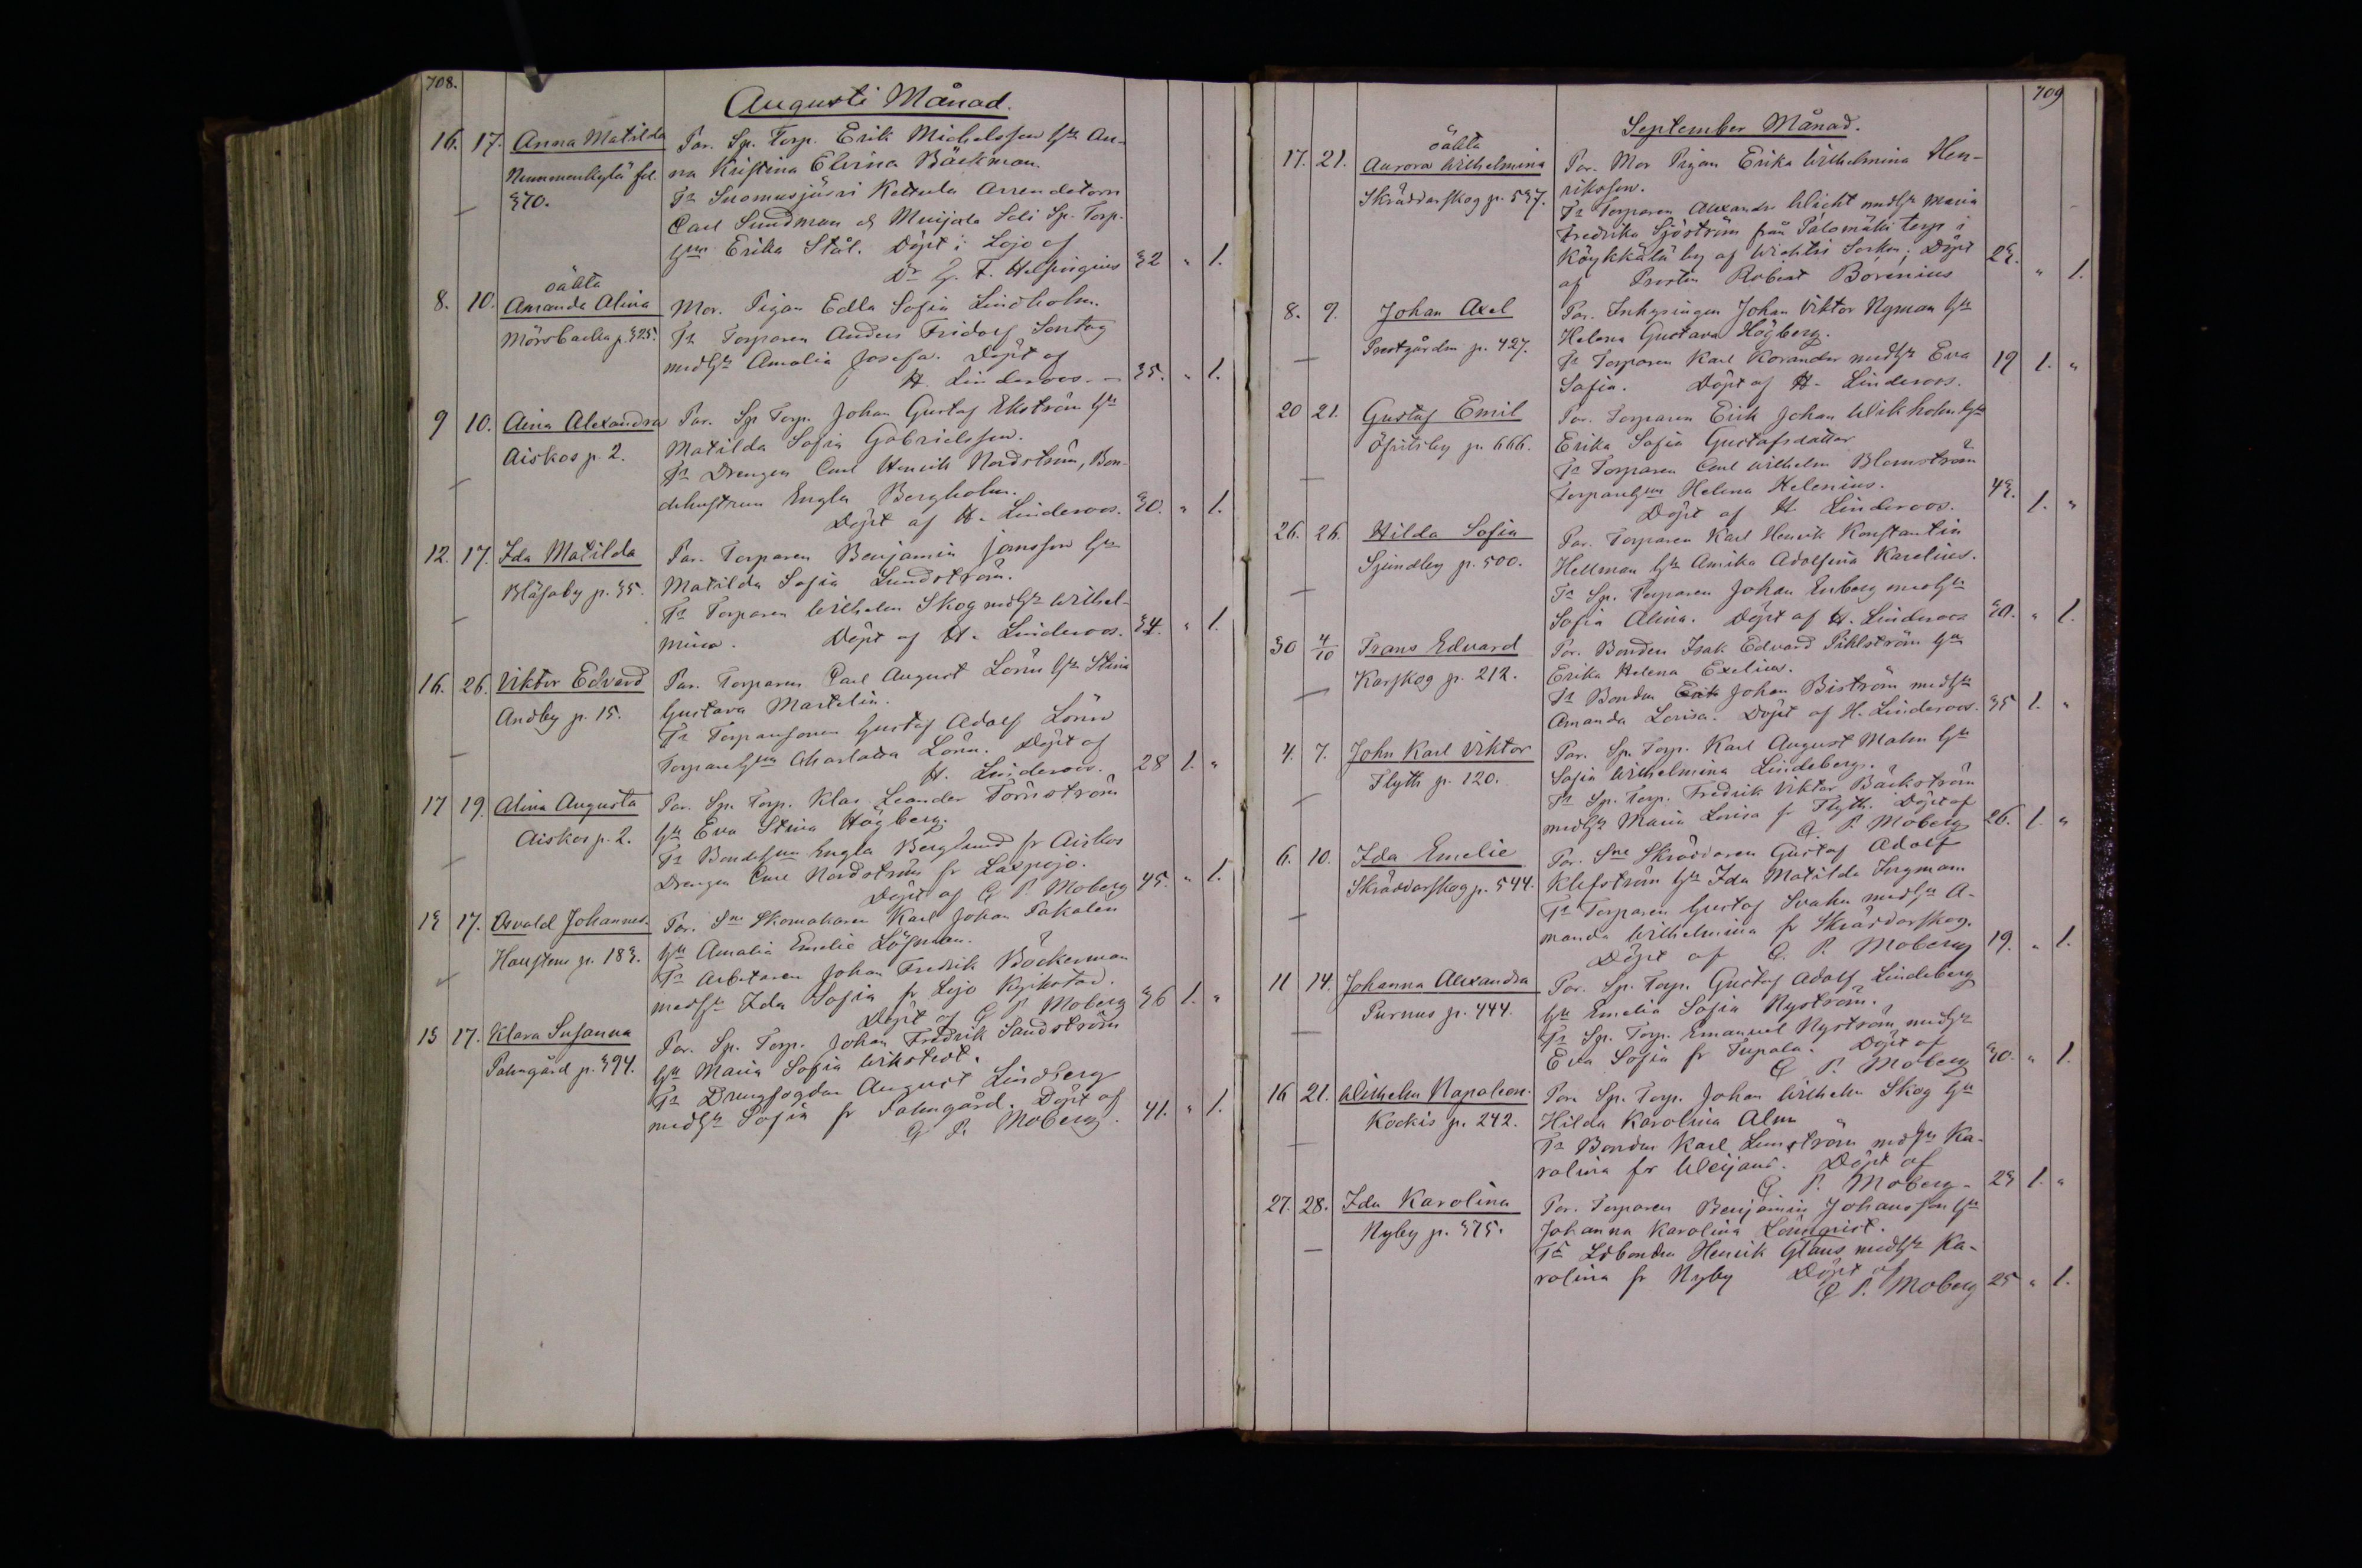 708.
Augusti Månad.
16. 17. Anna Matilda Par. Sp. Torp. Erik Michelsson hu An-
Nummenkylä fol. na Kristina Elvina Bäckman.
370. Fr Suomusjärvi Kettula Arrendatorn
Carl Sundman & Muijala Seli Sp. Torp.
hun Erika Stål. Döpt i Lojo af
Dr G. F. Helsingius 32 " 1.
oäkta
8. 10. Amanda Alina Mor. Pigan Edla Sofia Lindholm.
Mörsbacka p. 325. Fr Torparen Anders Fridolf Sontag
med hu Amalia Josefa. Döpt af
H. Linderoos. 35. " 1.
9 10. Aina Alexandra Par. Sp Torp. Johan Gustaf Ekström hu
Aiskos p. 2. Matilda Sofia Gabrielsson.
Fr Drengen Carl Henrik Nordström, Bon-
dehustrun Engla Bergholm.
Döpt af H. Linderoos. 30. " 1.
12. 17. Ida Matilda Par. Torparen Benjamin Jansson hu
Bläsaby p. 35. Matilda Sofia Lundström.
Fr Torparen Wilhelm Skog med hu Wilhel-
mina. Döpt af H. Linderoos. 34. " 1.
16. 26. Viktor Edvard Par. Torparen Carl August Lönn hu Stina
Andby p. 15. Gustava Martelin.
Fr Torparesonen Gustaf Adolf Lönn
Torparehun Charlotta Lönn. Döpt af
H. Linderoos. 28 1. "
17 19. Alina Augusta Par. Sp. Torp. Klas Leander Törnström
Aiskos p. 2. hu Eva Stina Högberg.
Fr Bondehun Engla Berglund fr Aiskos
Drengen Carl Nordström fr Laxpojo.
Döpt af G. P. Moberg 45. " 1.
13 17. Osvald Johannes. Par. Sne Skomakaren Karl Johan Pakalen
p. 183. hu Amalia Emelie Löfman.
Fr Arbetaren Johan Fredrik Böckerman
med hu Ida Sofia fr Lojo Kyrkstad.
Döpt af G P. Moberg 36 1. "
15 17. Klara Susanna Par. Sp. Torp. Johan Fredrik Sandström
Palmgård p. 394. hu Maria Sofia Wikstedt.
Fr Drengfogden August Lindberg
med hu Sofia fr Palmgård. Döpt af
G P. Moberg. 41. " 1.
709
September Månad.
oäkta
17. 21. Aurora Wilhelmina Par. Mor Pigan Erika Wilhelmina Hen-
Skräddarskog p. 537. riksson.
Fr Torparen Alexander Wicht med hu Maria
Fredrika Sjöström från Palomäki torp i
Köykkälä by af Wichtis Socken; Döpt
af Prosten Robert Borenius 23. " 1.
8. 9. Johan Axel Par. Inhysingen Johan Viktor Nyman hu
Prestgården p. 427. Helena Gustava Högberg.
Fr Torparen Karl Korander med hu Eva
Sofia. Döpt af H. Linderoos. 19 1. "
20 21. Gustaf Emil Par. Torparen Erik Johan Wikholm hu
Öfvitsby p. 666. Erika Sofia Gustafsdotter
Fr Torparen Carl Wilhelm Blomström
Torparehun Helena Helenius.
Döpt af H. Linderoos. 43. 1. "
26. 26. Hilda Sofia Par. Torparen Karl Henrik Konstantin
Sjundby p. 500. Hellman hu Amika Adolfina Karelius.
Fr Sp. Torparen Johan Enberg med hu
Sofia Alina. Döpt af H. Linderoos 30. " 1.
30 4/10 Frans Edvard Par. Bonden Isak Edvard Pihlström hu
Karskog p. 212. Erika Helena Exelius.
Fr Bonden Erik Johan Biström med hu
Amanda Lovisa. Döpt af H. Linderoos. 35 1. "
4. 7. John Karl Viktor Par. Sp. Torp. Karl August Malm hu
Flyth p. 120. Sofia Wilhelmina Lindeberg.
Fr Sp. Torp. Fredrik Viktor Bäckström
med hu Maria Lovisa fr Flyth. Döpt af
G. P. Moberg 26. 1. "
6. 10. Ida Emelie Par. Sne Skräddaren Gustaf Adolf
Skräddarskog p. 544. Klefström hu Ida Matilda Jungman
Fr Torparen Gustaf Svahn med hu A-
manda Wilhelmina fr Skräddarskog.
Döpt af G. P. Moberg 19. " 1.
11 14. Johanna Alexandra Par. Sp. Torp. Gustaf Adolf Lindeberg
Purnus p. 444. hu Emelia Sofia Nyström.
Fr Sp. Torp. Emanuel Nyström med hu
Eva Sofia fr Tupala. Döpt af
G P. Moberg 30. " 1.
16 21. Wilhelm Napoleon. Par. Sp. Torp. Johan Wilhelm Skog hu
Kockis p. 242. Hilda Karolina Alm
Fr Bonden Karl Lunström med hu Ka-
rolina fr Weijans. Döpt af
G P. Moberg. 23 1. "
27. 28. Ida Karolina Par. Torparen Benjamin Johansson hu
Nyby p. 375. Johanna Karolina Lönnqvist.
Fr Ldbonden Henrik Glans med hu Ka-
rolina fr Nyby Döpt af
G P. Moberg 25 " 1.